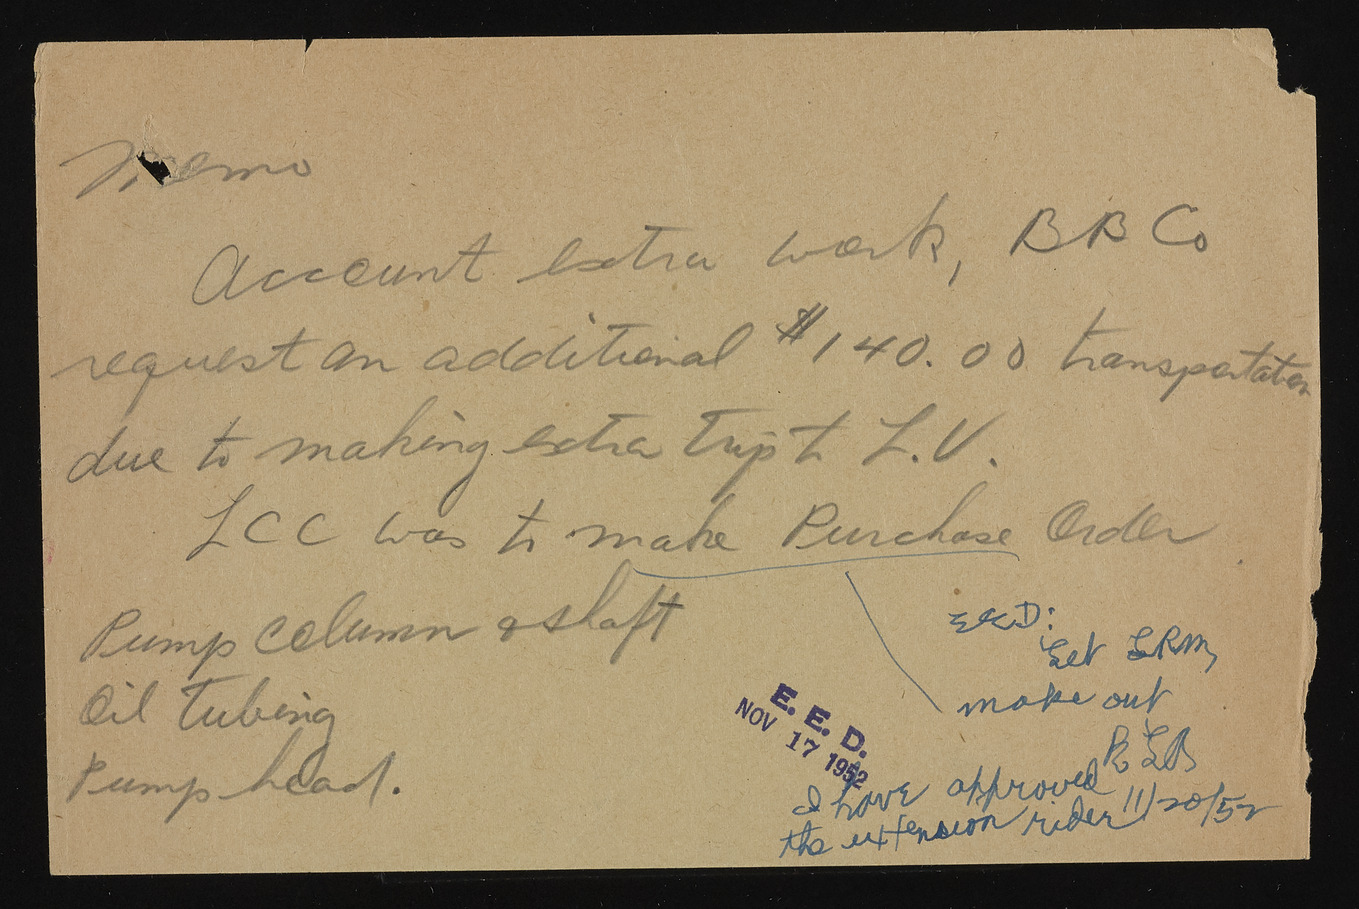 Memo
Account extra work, B B Co
request an additional $140.00 transportation
due to making extra trip to L.V.
LCC was to make Purchase Order
Pump column & shaft
Oil tubing
Pump head.
EED:
Let LRM,
make out
E. E. D.
NOV 17 1952
I have approved
the extension rider 11/20/52